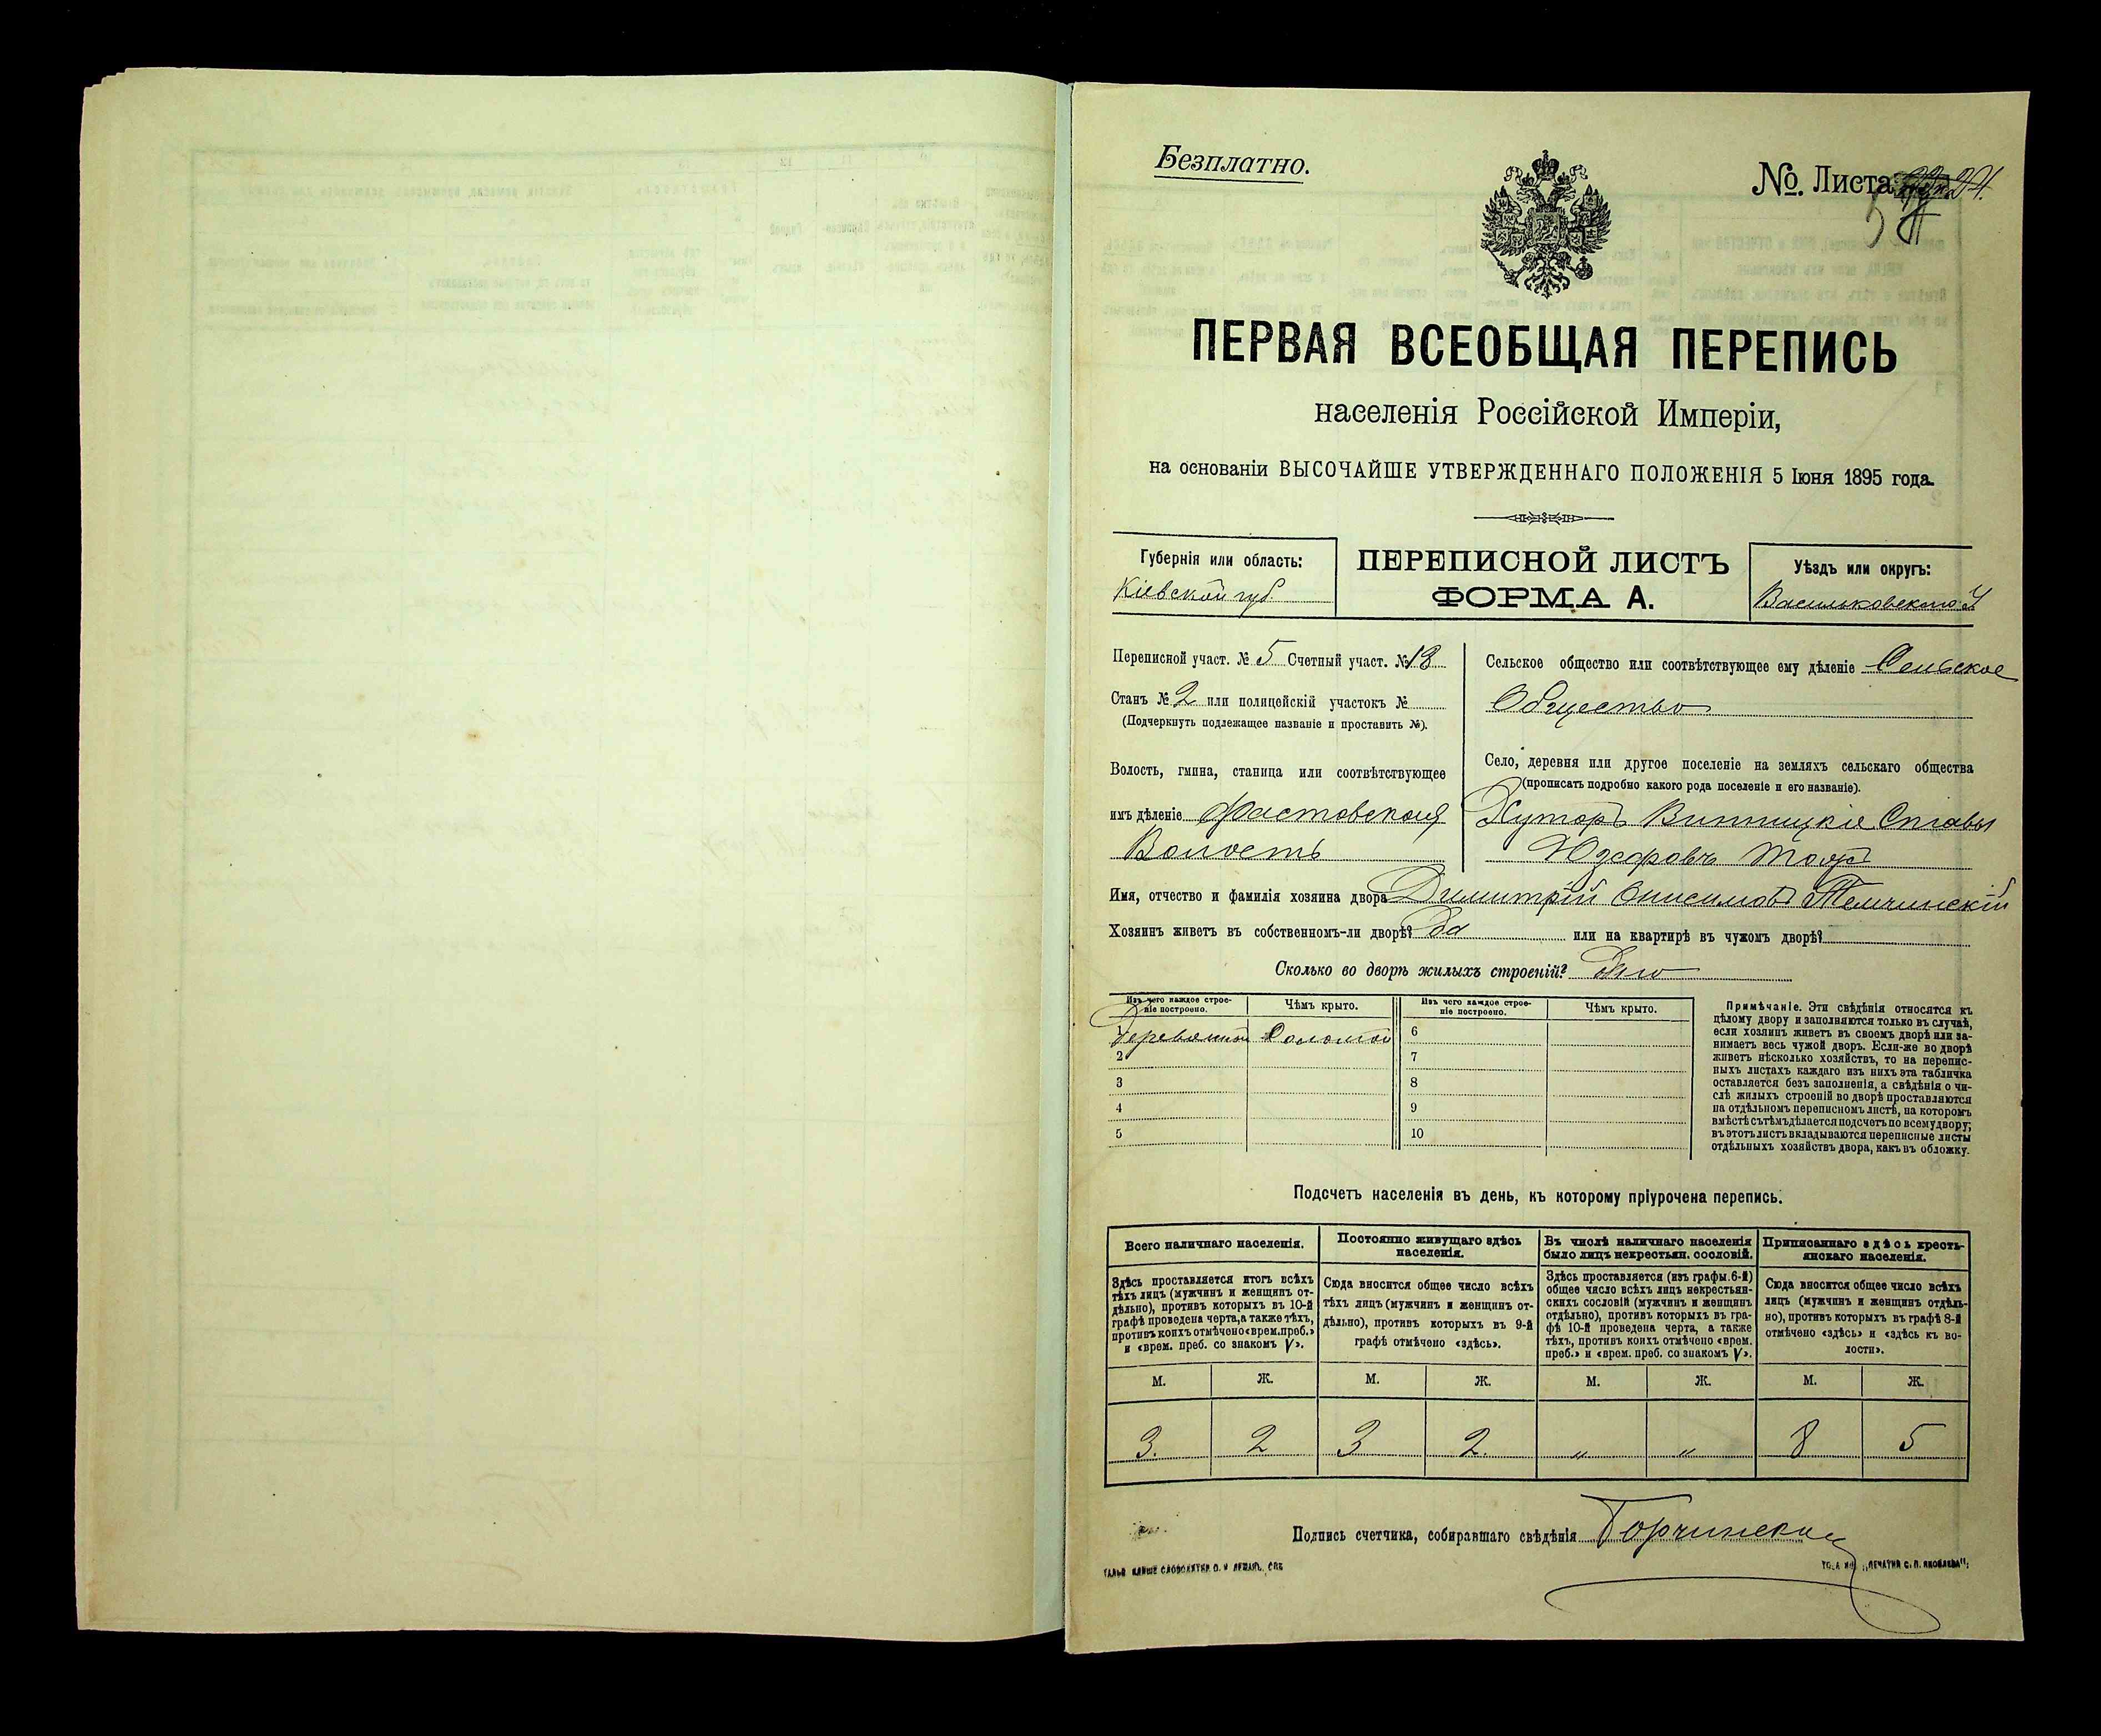 Безплатно.
№. Листа 24.
ПЕРВАЯ ВСЕОБЩАЯ ПЕРЕПИСЬ
населенія Россійской Имперіи,
на основаніи ВЫСОЧАЙШЕ УТВЕРЖДЕННАГО ПОЛОЖЕНІЯ 5 Іюня 1895 года.
Губернія или область:
Кіевской губ.
ПЕРЕПИСНОЙ ЛИСТЪ
ФОРМА А.
Уѣздъ или округъ:
Васильковскаго У
Переписной участ. № 5 Счетный участ. № 18
Станъ № 2 или полицейскій участокъ №
(Подчеркнуть подлежащее названіе и проставить №).
Волость, гмина, станица или соотвѣтствующее
имъ дѣленіе Фастовская
Волость
Сельское общество или соотвѣтствующее ему дѣленіе Сельское
Общество
Село, деревня или другое поселеніе на земляхъ сельскаго общества
(прописать подробно какого рода поселеніе и его названіе).
Хуторъ Ставы
Имя, отчество и фамилія хозяина двора Димитрій Онисимовъ Темчинскій
Хозяинъ живетъ въ собственномъ-ли дворѣ? Да или на квартирѣ въ чужомъ дворѣ?
Сколько во дворѣ жилыхъ строеній?
Изъ чего каждое строеніе построено. Чѣмъ крыто. Изъ чего каждое строеніе построено. Чѣмъ крыто.
1 Соломой 6
2 7
3 8
4 9
5 10
Примѣчаніе. Эти свѣдѣнія относятся къ
цѣлому двору и заполняются только въ случаѣ,
если хозяинъ живетъ въ своемъ дворѣ или за-
нимаетъ весь чужой дворъ. Если-же во дворѣ
живетъ нѣсколько хозяйствъ, то на перепис-
ныхъ листахъ каждаго изъ нихъ эта табличка
оставляется безъ заполненія, а свѣдѣнія о чи-
слѣ жилыхъ строеній во дворѣ проставляются
на отдѣльномъ переписномъ листѣ, на которомъ
вмѣстѣ съ тѣмъ дѣлается подсчетъ по всему двору;
въ этотъ листъ вкладываются переписные листы
отдѣльныхъ хозяйствъ двора, какъ въ обложку.
Подсчетъ населенія въ день, къ которому пріурочена перепись.
Всего наличнаго населенія.
Здѣсь проставляется итогъ всѣхъ
тѣхъ лицъ (мужчинъ и женщинъ от-
дѣльно), противъ которыхъ въ 10-й
графѣ проведена черта, а также тѣхъ,
противъ коихъ отмѣчено «врем. преб.»
и «врем. преб. со знакомъ V».
Постоянно живущаго здѣсь
населенія.
Сюда вносится общее число всѣхъ
тѣхъ лицъ (мужчинъ и женщинъ от-
дѣльно), противъ которыхъ въ 9-й
графѣ отмѣчено «здѣсь».
Въ числѣ наличнаго населенія
было лицъ некрестьян. сословій.
Здѣсь проставляется (изъ графы 6-й)
общее число всѣхъ лицъ некрестьян-
скихъ сословій (мужчинъ и женщинъ
отдѣльно), противъ которыхъ въ гра-
фѣ 10-й проведена черта, а также
тѣхъ, противъ коихъ отмѣчено «врем.
преб.» и «врем. преб. со знакомъ V».
Приписаннаго здѣсь кресть-
янскаго населенія.
Сюда вносится общее число всѣхъ
лицъ (мужчинъ и женщинъ отдѣль-
но), противъ которыхъ въ графѣ 8-й
отмѣчено «здѣсь» и «здѣсь къ во-
лости».
М. Ж. М. Ж. М. Ж. М. Ж.
3. 2 3 2. " " 8 5
Подпись счетчика, собиравшаго свѣдѣнія